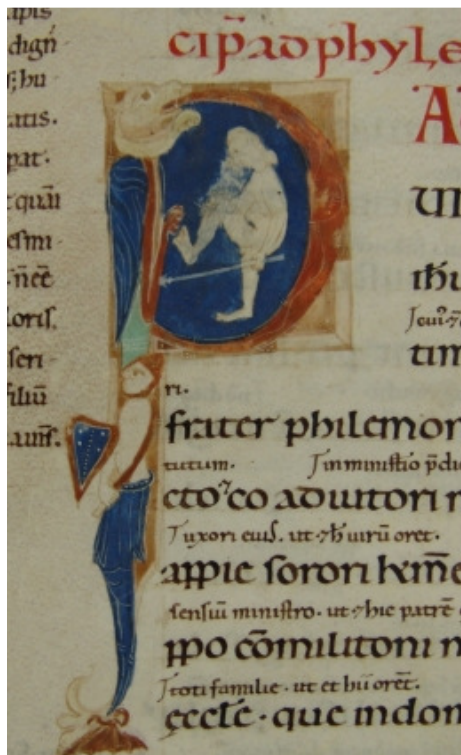 dign
hu
tatis.
pat.
quā
esmi
loris.
seri
filiū
cip̄ ad phyle
A
ih̄u
tim
ri.
frater philemon
tutum. In ministio p̄di
cto ⁊ co adiutori n
uxori eius. ut ⁊ h̄ uirū oret.
appie sorori
sensiū ministro. ut ⁊ hic patrē
ppo cōmilitoni n
toti familie. ut et hii orēt.
eccłe. que in dom